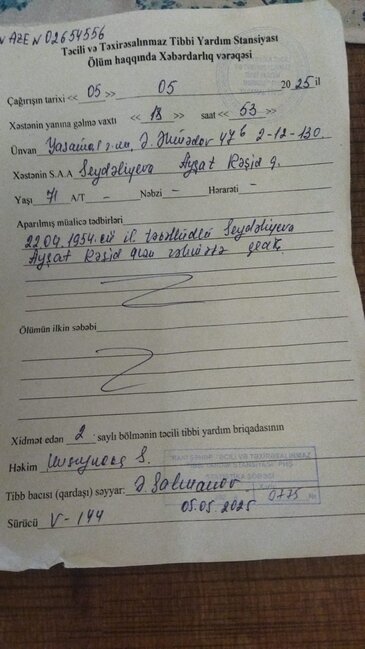 AZE N 02654556
Təcili və Təxirəsalınmaz Tibbi Yardım Stansiyası
Ölüm haqqında Xəbərdarlıq vərəqəsi
Çağırışın tarixi << 05 >> 05 2025 il
Xəstənin yanına gəlmə vaxtı << 13 >> saat << 53 >>
Ünvan Yasamal Ə. 47б 2-12-130.
Xəstənin S.A.A Seydəliyeva Ayşat Rəşid q.
Yaşı 71 A/T – Nəbzi – Hərarəti –
Aparılmış müalicə tədbirləri
22.04.1954.cü il təvəllüdlü Seydəliyeva
Ayşat Rəşid qızı
Ölümün ilkin səbəbi
Xidmət edən 2 saylı bölmənin təcili tibbi yardım briqadasının
Həkim S.
Tibb bacısı (qardaşı) səyyar: Ə. Salmanov
05.05.2025
0775 №
Sürücü V-144